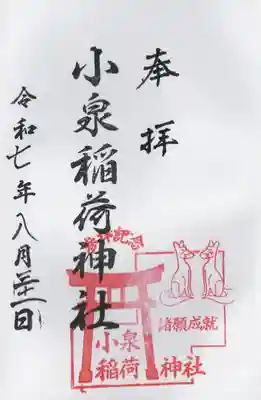 奉拝
小泉稲荷神社
令和七年八月 日
参拝記念
諸願成就
小泉
稲荷 神社